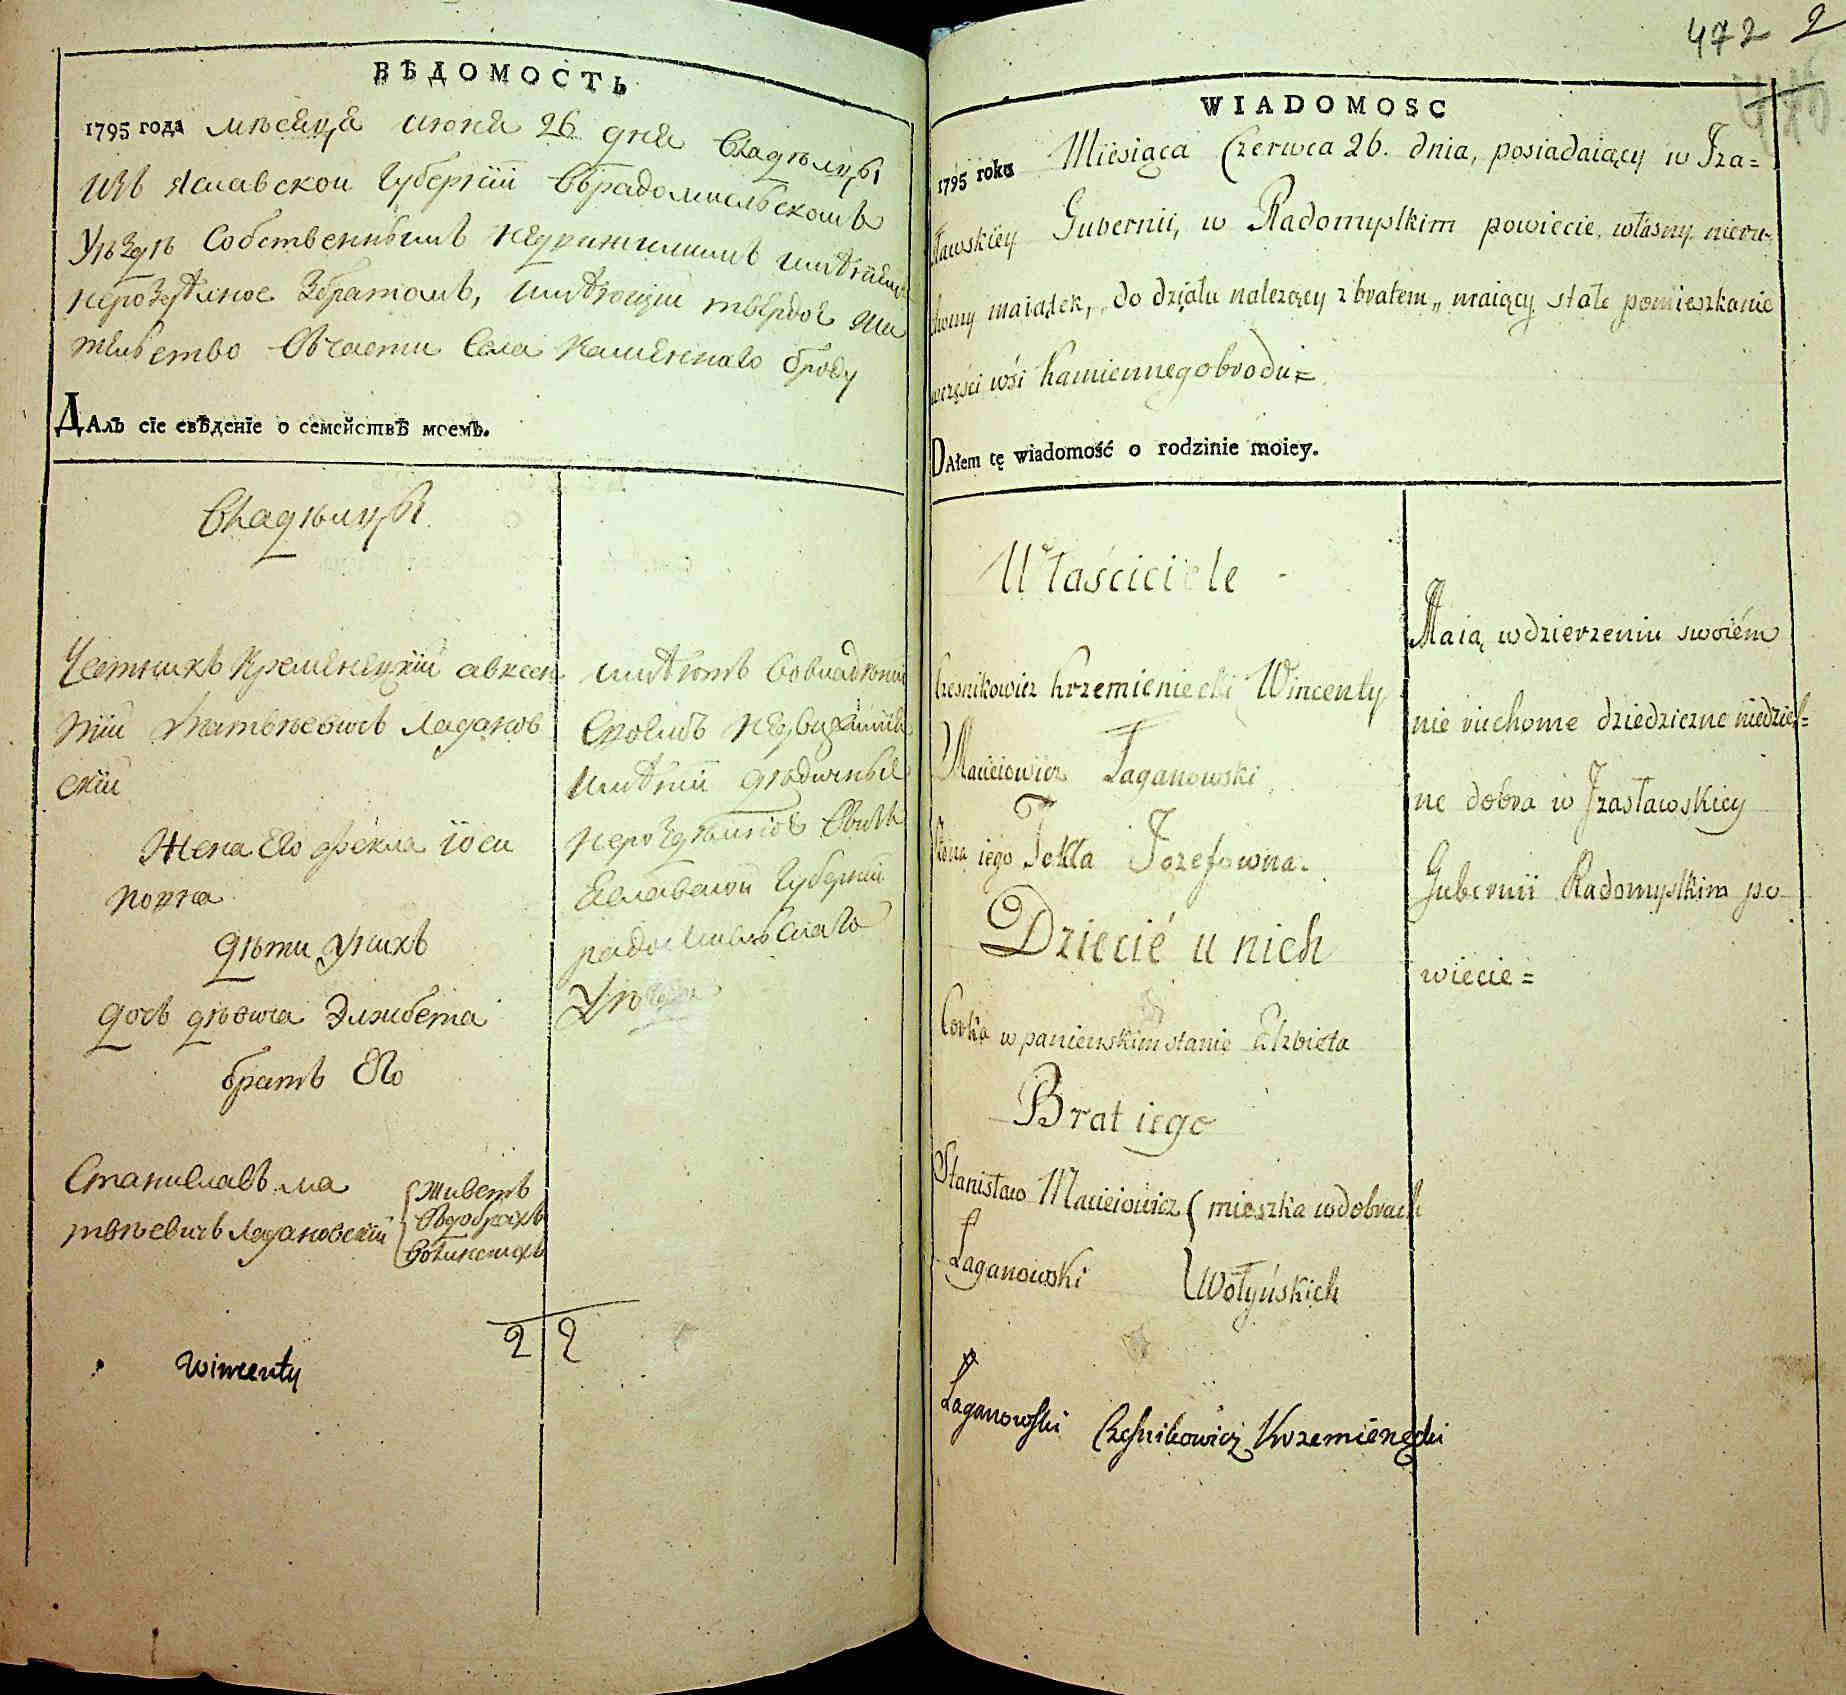 ВѢДОМОСТЬ
1795 года мѣсяца июня 26 дня владѣлцы
изъ яславской губернїи въ радомисльскомъ
уѣздѣ собственнымъ недвижимимъ имѣнїемъ
нероздѣлное збратомъ, имѣющїи твердое жи
телъство въ части села каменнаго броду
ДАлъ сїе свѣденїе о семействѣ моемъ.
владѣлцы
Чесникъ Кременецкїй
матвѣевичъ Лагановъ
скїй
Жена Его фекла їоси
повна
дѣти у нихъ
дочь дѣвица Элжбета
братъ Его
Станиславъ ма
твѣевичъ Лагановскїй
живетъ
въ добрахъ
волинскихъ
имѣютъ во владѣнїи
своемъ недвижимїе
имѣнїи дѣдичные
нероздѣлное
губернїи
радомислъскаго
уѣзда
2 2
Wincenty
472 2
WIADOMOSC
1795 roku Miesiąca Czerwca 26. dnia, posiadaiący w Iza=
sławskiey Gubernii, w Radomyslkim powiecie, własny nieru-
chomy maiątek, do działu nalezący z bratem, maiący stałe pomieszkanie
w części wśi Kamiennegobrodu=
DAłem tę wiadomość o rodzinie moiey.
Właściciele
Czesnikowicz Krzemieniecki Wincenty
Macieiowicz Łaganowski
Żona iego Tekla Jozefowna.
Dziecié u nich
Corka w panienskim stanie Elzbieta
Brat iego
Stanisław Macieiowicz { mieszka w dobrach
Łaganowski Wołyńskich
Maią w dzierzeniu swoiém
nie ruchome dziedziczne niedziel-
ne dobra w Izasławskiey
Gubernii Radomyslkim po
wiecie=
Łaganowski Czesnikowicz Krzemieniecki